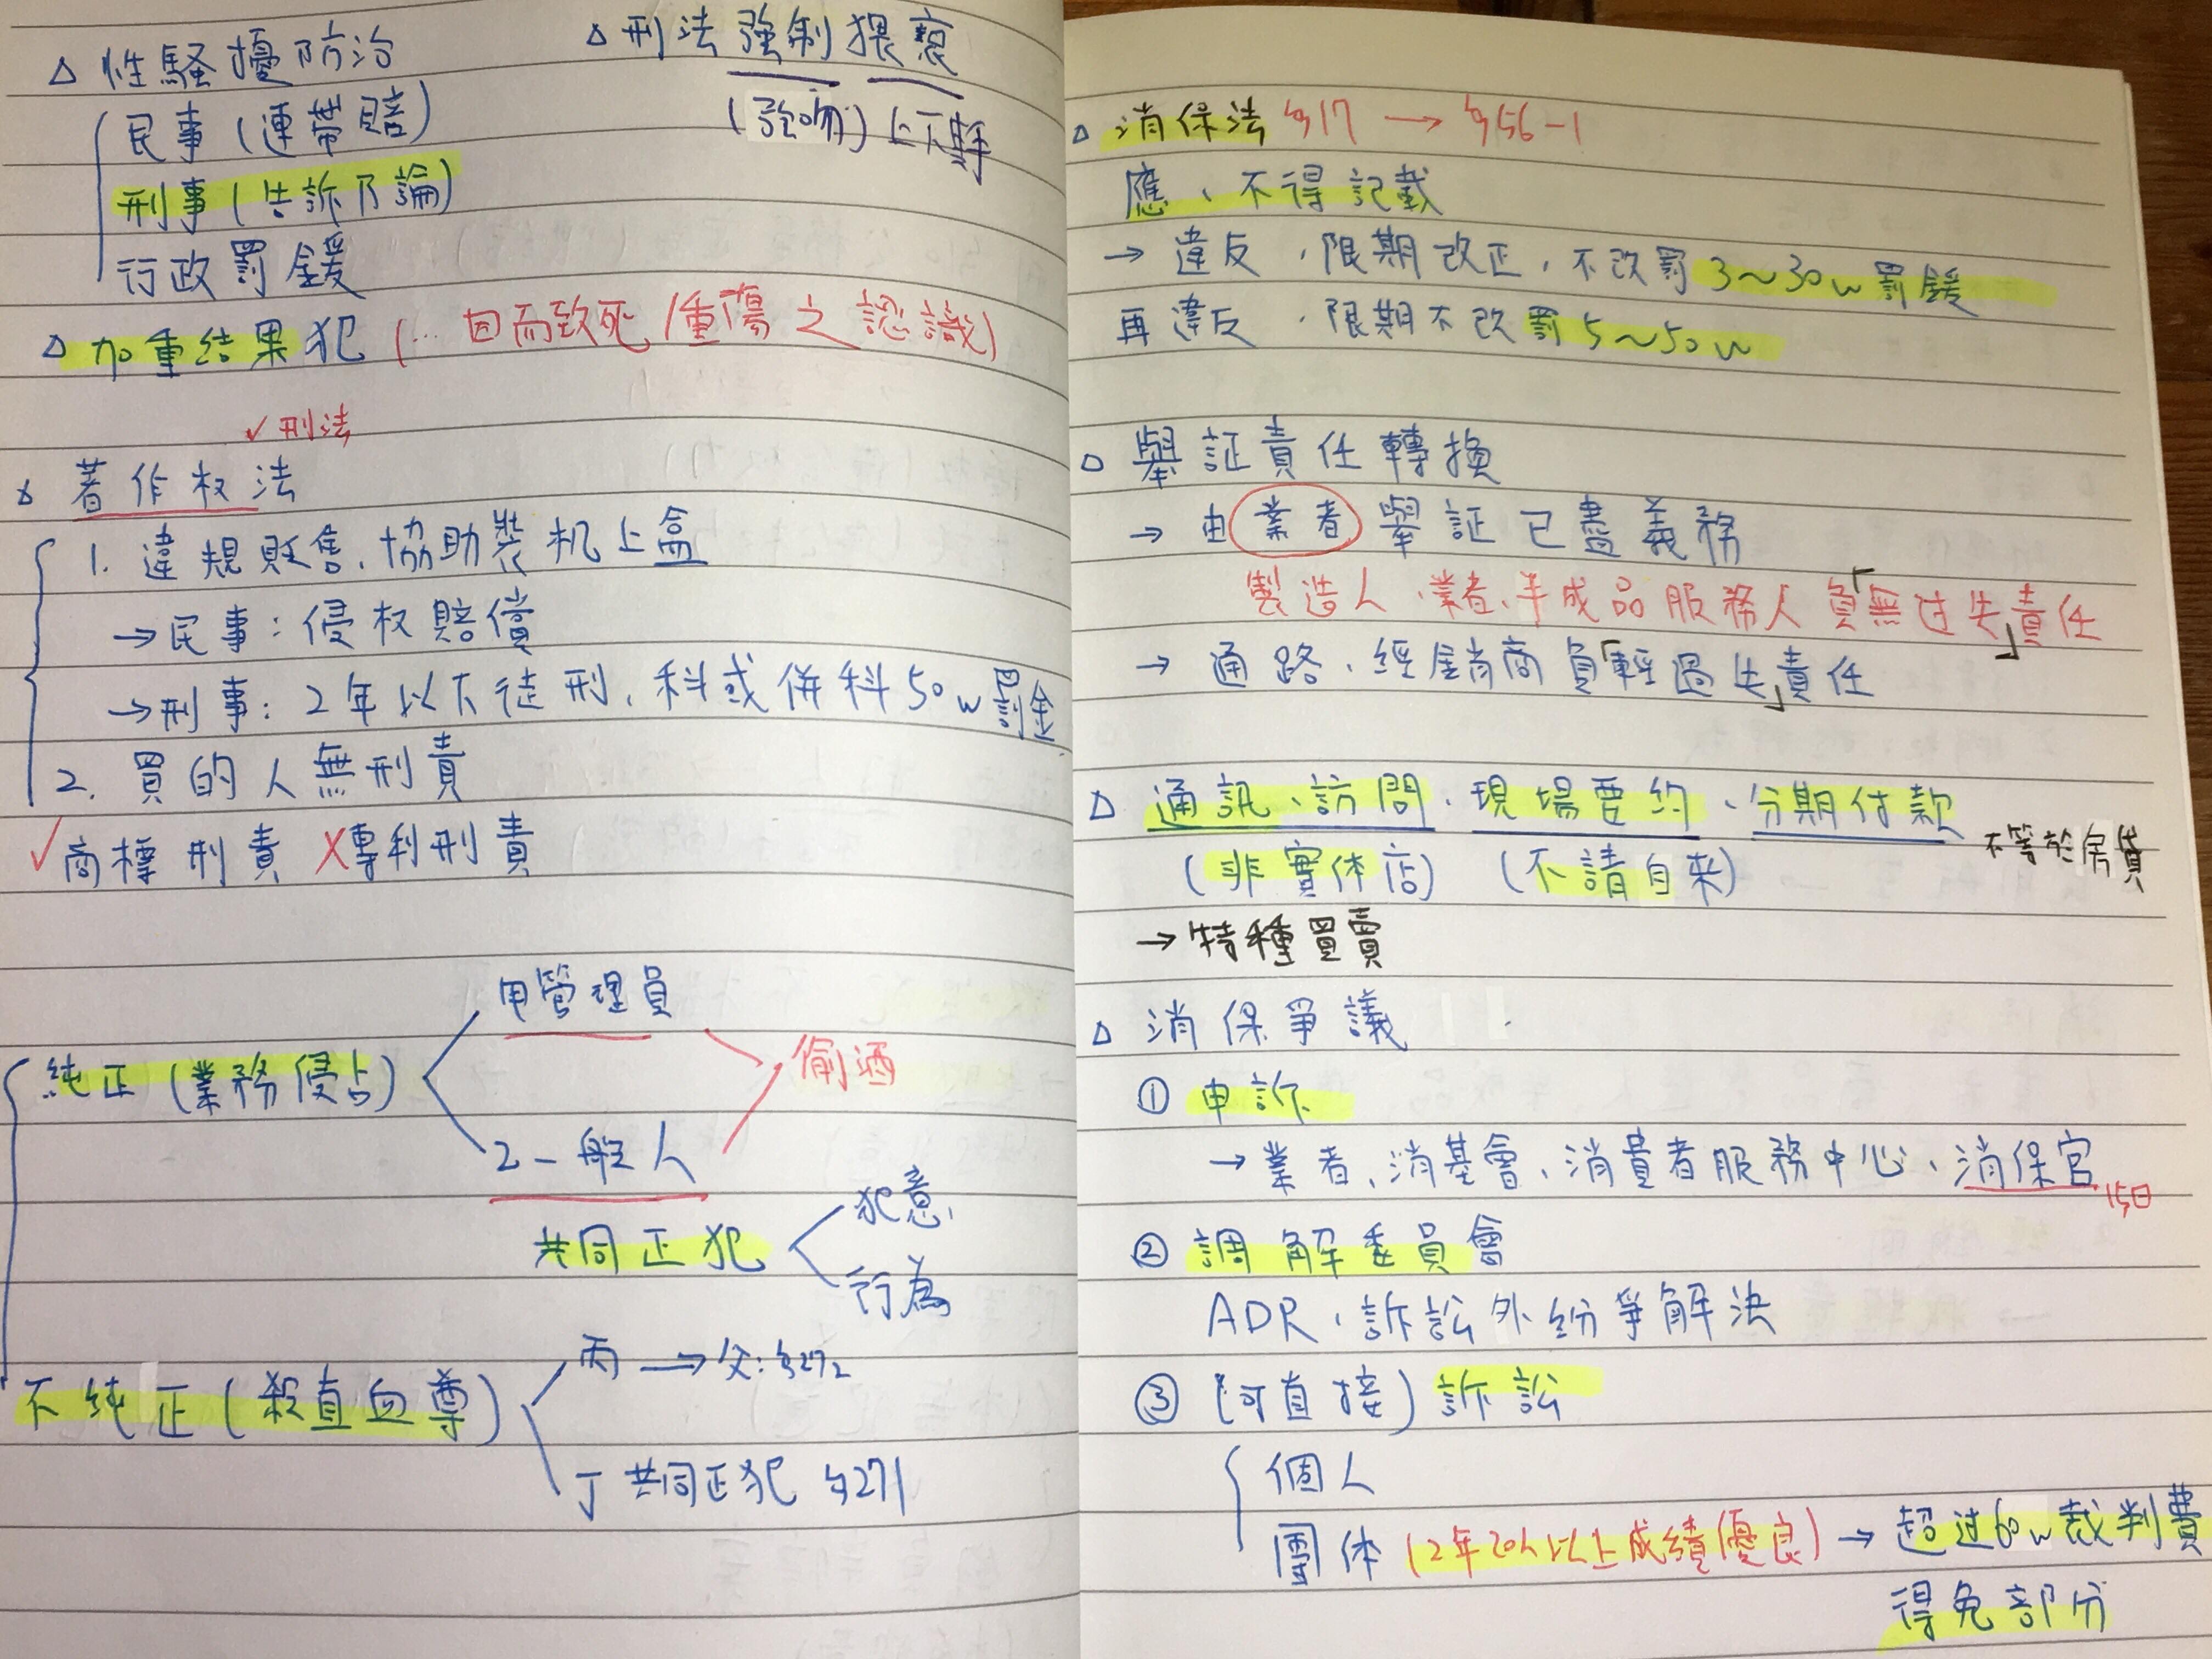 △ 性騷擾防治
民事(連帶賠)
刑事(告訴乃論)
行政罰鍰
△ 刑法強制猥褻
(強吻)上下其手
△ 加重結果犯(…因而致死/重傷之認識)
✓刑法
△ 著作权法
1. 違規販售、協助裝机上盒
→民事:侵权賠償
→刑事:2年以下徒刑、科或併科50w罰金
2. 買的人無刑責
✓商標刑責 X專利刑責
純正(業務侵占)
甲管理員
乙一般人
偷酒
共同正犯
犯意
行為
不純正(殺直血尊)
丙→父:§272
丁共同正犯 §271
△ 消保法 §17 → §56-1
應、不得記載
→ 違反、限期改正、不改罰3~30w罰鍰
再違反、限期不改罰5~50w
△ 舉証責任轉換
→ 由業者舉証已盡義務
製造人、業者、半成品服務人負「無过失」責任
→ 通路、經銷商負「輕過失」責任
△ 通訊、訪問、現場要約、分期付款
不等於房貸
(非實体店) (不請自來)
→特種買賣
△ 消保爭議
① 申訴
→業者、消基會、消費者服務中心、消保官 15日
② 調解委員會
ADR、訴訟外紛爭解決
③ (可直接)訴訟
個人
團体(2年20人以上成績優良)→ 超过60w裁判費
得免部分